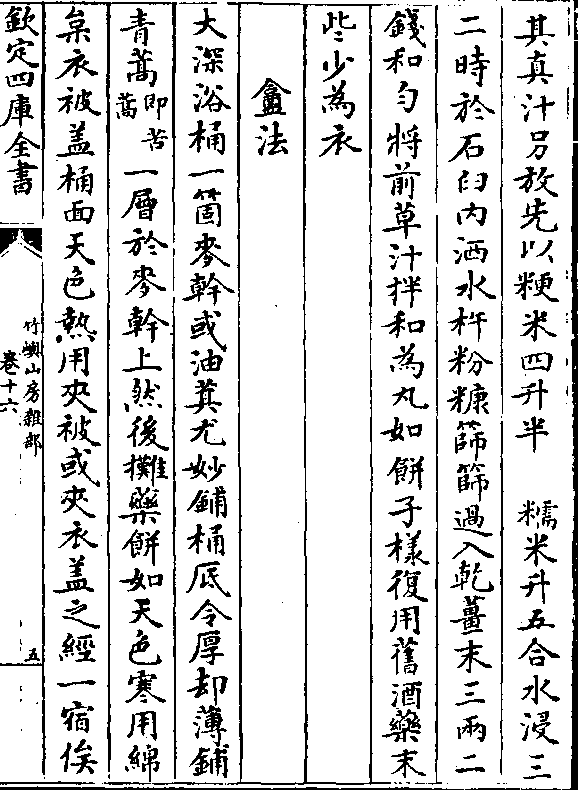 其真汁另放先以粳米四升半　糯米升五合水浸三
二時於石臼内洒水杵粉糠篩篩過入乾薑末三兩二
錢和勻將前草汁拌和為丸如餅子樣復用舊酒藥末
些少為衣
盦法
大深浴桶一箇麥幹或油萁尤妙鋪桶底令厚却薄鋪
青蒿即苦蒿一層於麥幹上然後攤藥餅如天色寒用綿
枲衣被盖桶面天色熱用夾被或夾衣盖之經一宿俟
欽定四庫全書
竹嶼山房雜部
卷十六
五